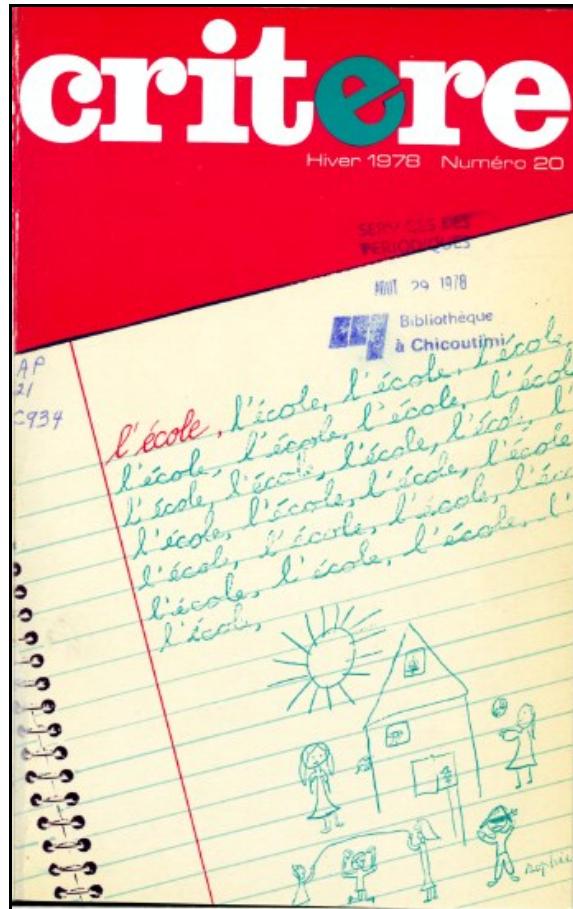 critere
Hiver 1978 Numéro 20
SERVICES DES
PERIODIQUES
AOUT 29 1978
Bibliothèque
à Chicoutimi
AP
21
C934
l'école, l'école, l'école, l'école,
l'école, l'école, l'école, l'école
l'école, l'école, l'école, l'école, l'
l'école, l'école, l'école, l'école
l'école, l'école, l'école, l'éco
l'école, l'école, l'école, l'
l'école,
Sophie